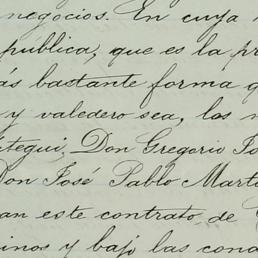 negocios. En cuya
pública, que es la pr
ás bastante forma q
y valedero sea, los
tegui, Don Gregorio
Don José Pablo Mart
an este contrato de
inos y bajo las cond